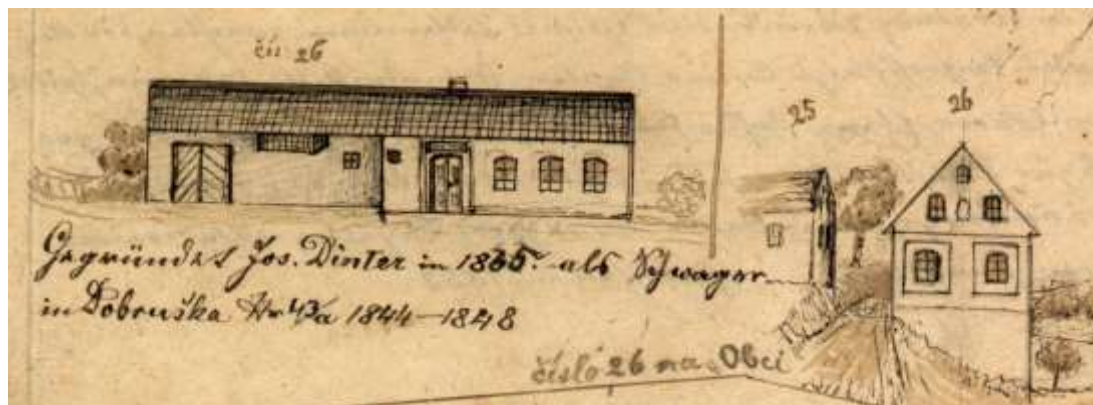 čís 26
25
26
Gegründet Jos. Dinter in 1865. als Schwager
in Dobruška Nr 43/a 1844–1848
číslo 26 na Obci